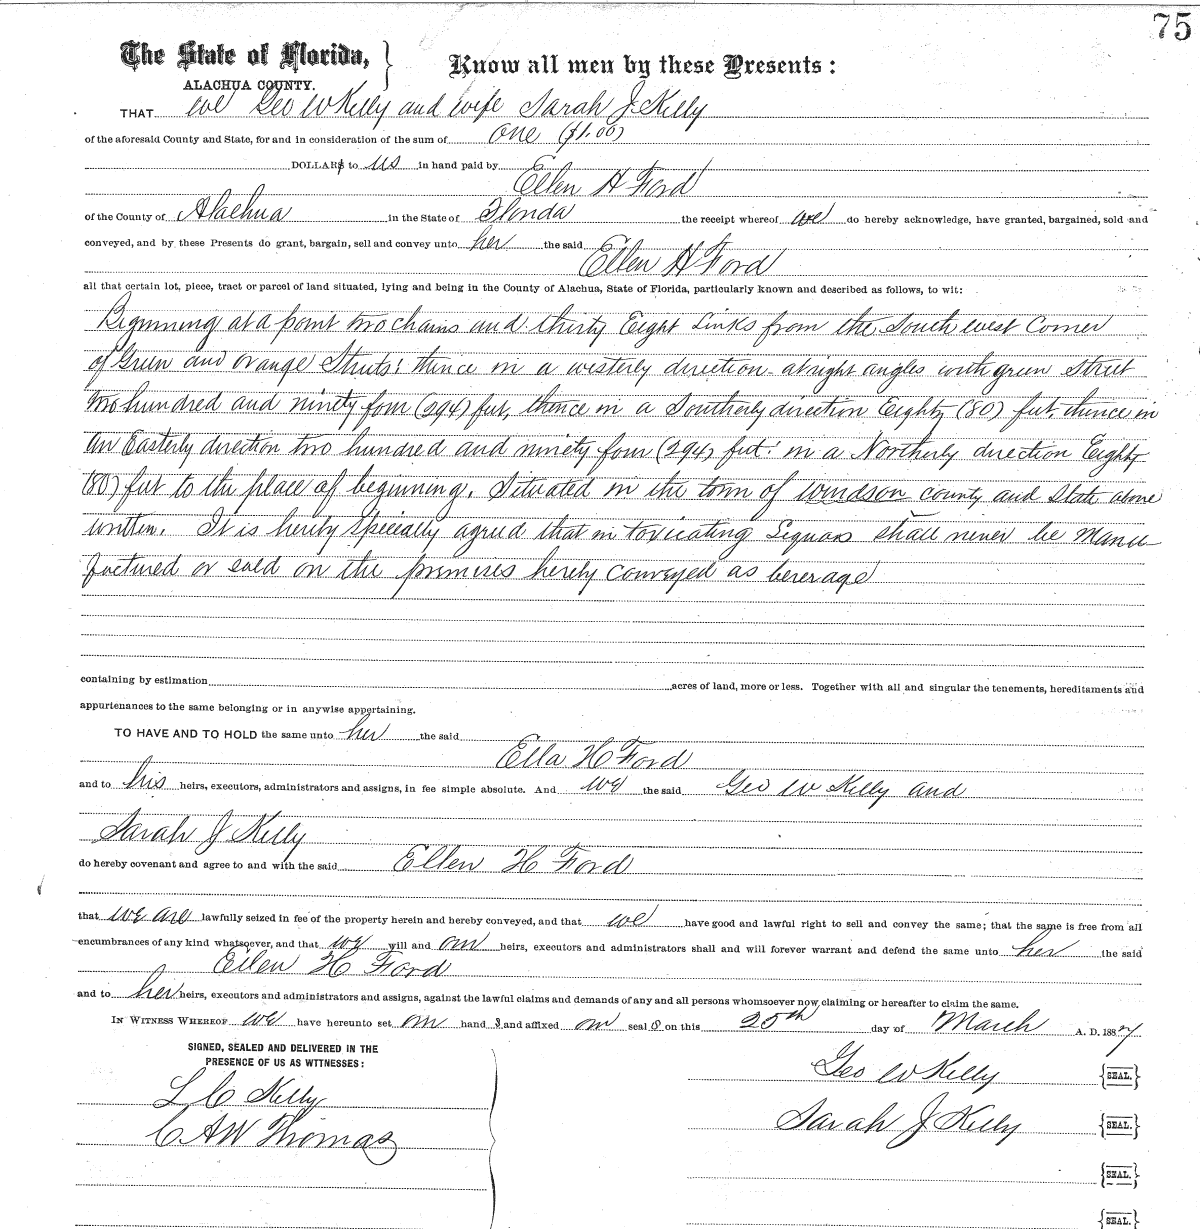 75
The State of Florida, } Know all men by these Presents:
ALACHUA COUNTY.
THAT we Geo W Kelly and wife Sarah J Kelly
of the aforesaid County and State, for and in consideration of the sum of one ($1.00)
DOLLARS to us in hand paid by
Ellen H Ford
of the County of Alachua in the State of Florida the receipt whereof we do hereby acknowledge, have granted, bargained, sold and
conveyed, and by these Presents do grant, bargain, sell and convey unto her the said
Ellen H Ford
all that certain lot, piece, tract or parcel of land situated, lying and being in the County of Alachua, State of Florida, particularly known and described as follows, to wit:
Beginning at a point two chains and thirty Eight Links from the South west Corner
of Green and orange Streets: thence in a westerly direction at right angles with green Street
two hundred and ninety four (294) feet, thence in a Southerly direction Eighty (80) feet, thence in
an Easterly direction two hundred and ninety four (294) feet: in a Northerly direction Eighty
(80) feet to the place of beginning. Situated in the town of Windsor county and State above
written. It is hereby Specially agreed that in toxicating Liquors shall never be Manu
factured or sold on the premises hereby conveyed as beverage
containing by estimation acres of land, more or less. Together with all and singular the tenements, hereditaments and
appurtenances to the same belonging or in anywise appertaining.
TO HAVE AND TO HOLD the same unto her the said
Ella H Ford
and to his heirs, executors, administrators and assigns, in fee simple absolute. And we the said Geo W Kelly and
Sarah J Kelly
do hereby covenant and agree to and with the said Ellen H Ford
that we are lawfully seized in fee of the property herein and hereby conveyed, and that we have good and lawful right to sell and convey the same; that the same is free from all
encumbrances of any kind whatsoever, and that we will and our heirs, executors and administrators shall and will forever warrant and defend the same unto her the said
Ellen H Ford
and to her heirs, executors and administrators and assigns, against the lawful claims and demands of any and all persons whomsoever now claiming or hereafter to claim the same.
IN WITNESS WHEREOF we have hereunto set our hand s and affixed our seal s on this 25th day of March A. D. 1887
SIGNED, SEALED AND DELIVERED IN THE
PRESENCE OF US AS WITNESSES:
Geo W Kelly {SEAL.}
L C Kelly
Sarah J Kelly {SEAL.}
C A W Thomas
{SEAL.}
{SEAL.}